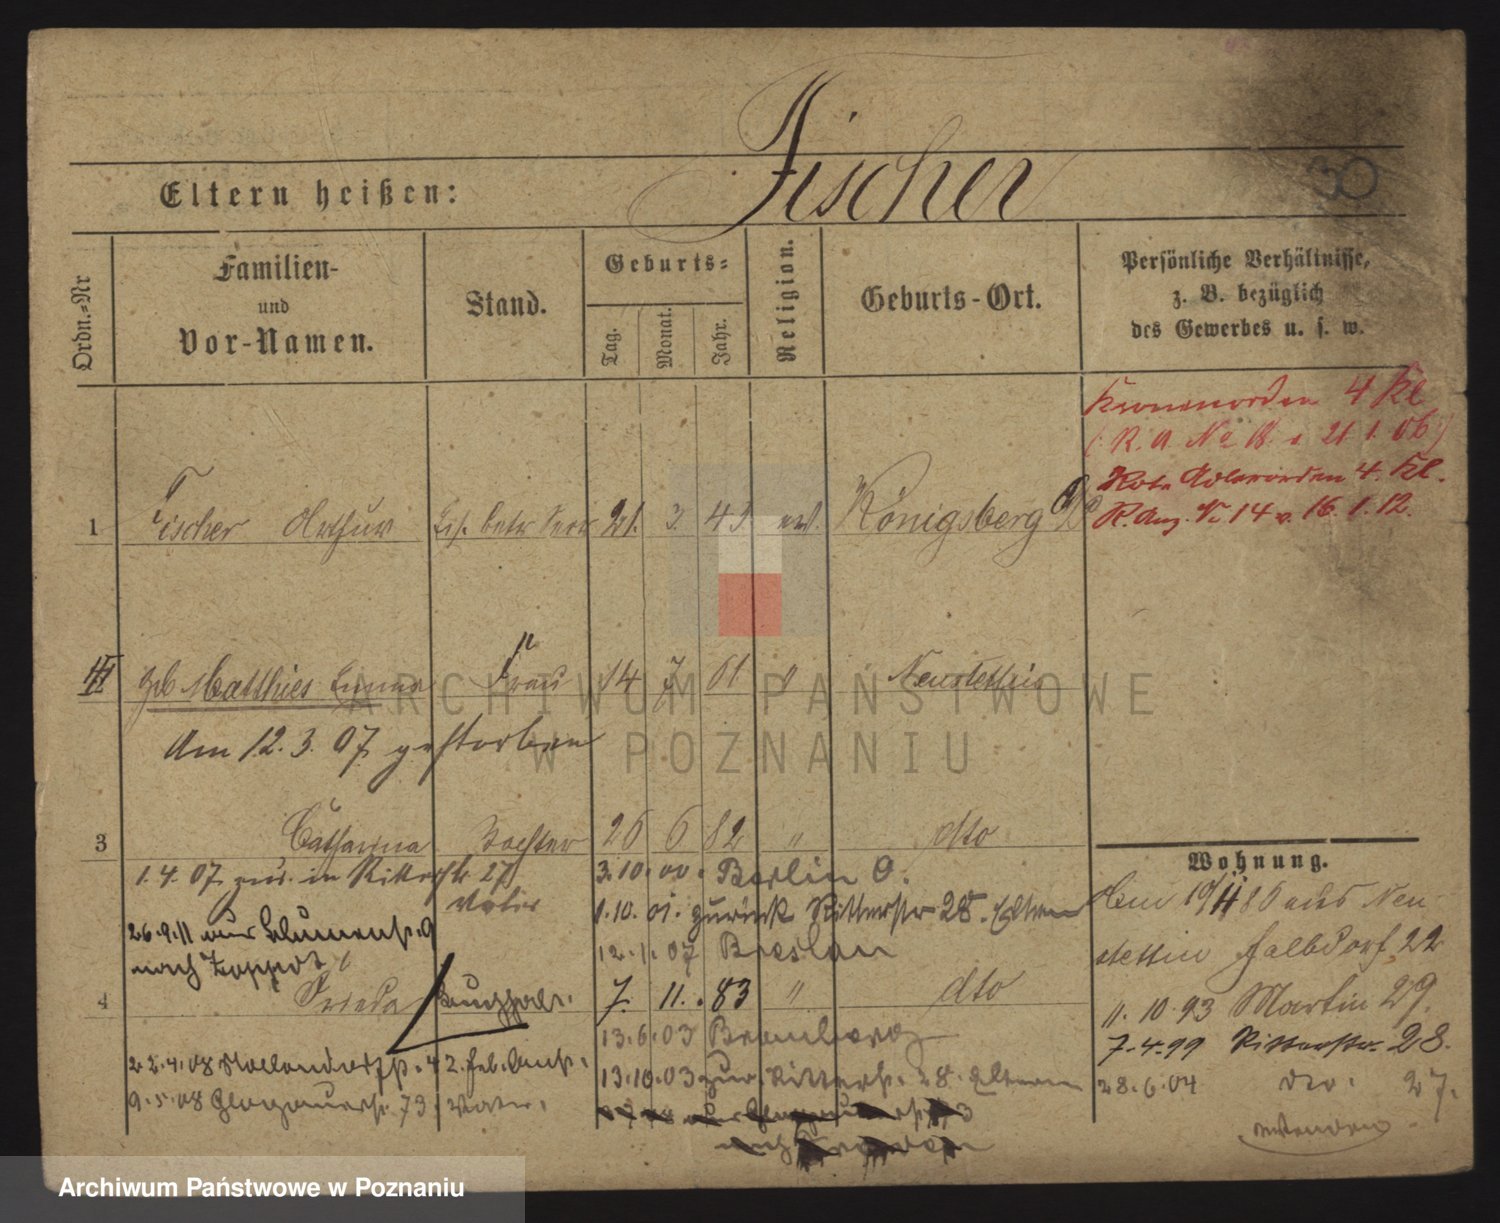 30
Eltern heißen: Fischer
Ordn.-Nr
Familien-
und
Vor-Namen.
Stand.
Geburts-
Tag.
Monat.
Jahr.
Religion.
Geburts-Ort.
Persönliche Verhältnisse,
z. B. bezüglich
des Gewerbes u. s. w.
Kronenorden 4 Kl
(R. A. No 18. v 21 1. 06)
Rote Adlerorden 4. Kl.
R. Anz. No 14 v. 16. 1. 12.
1 Fischer Arthur Eis. betr Secr 21. 3. ev. Königsberg
II geb Matthies Emma Frau 14 7 61 " Neustettin
Am 12. 3. 07 gestorben
3 Catharina Tochter 26 6 82 " dto
1. 4. 07 zur. in Ritterstr 27
Vater
3. 10. 00. Berlin O.
1. 10. 01. zurück Ritterstr 28. Eltern
12. 1. 07 Breslau
26. 9. 11 von Blumenstr. 9
nach Zoppot
4 Frieda 7. 11. 83 " dto
13. 6. 03 Bromberg
13. 10. 03 zur. Ritterstr. 28. Eltern
22. 4. 08 4
9. 5. 08 Glogauerstr. 73. Vater.
Wohnung.
Am 19/4 86 aus Neu-
stettin Halbdorf 22
11. 10. 93 Martin 29.
7. 4. 99 Ritterstr. 28.
28. 6. 04 27.
wenden
ARCHIWUM PAŃSTWOWE
W POZNANIU
Archiwum Państwowe w Poznaniu